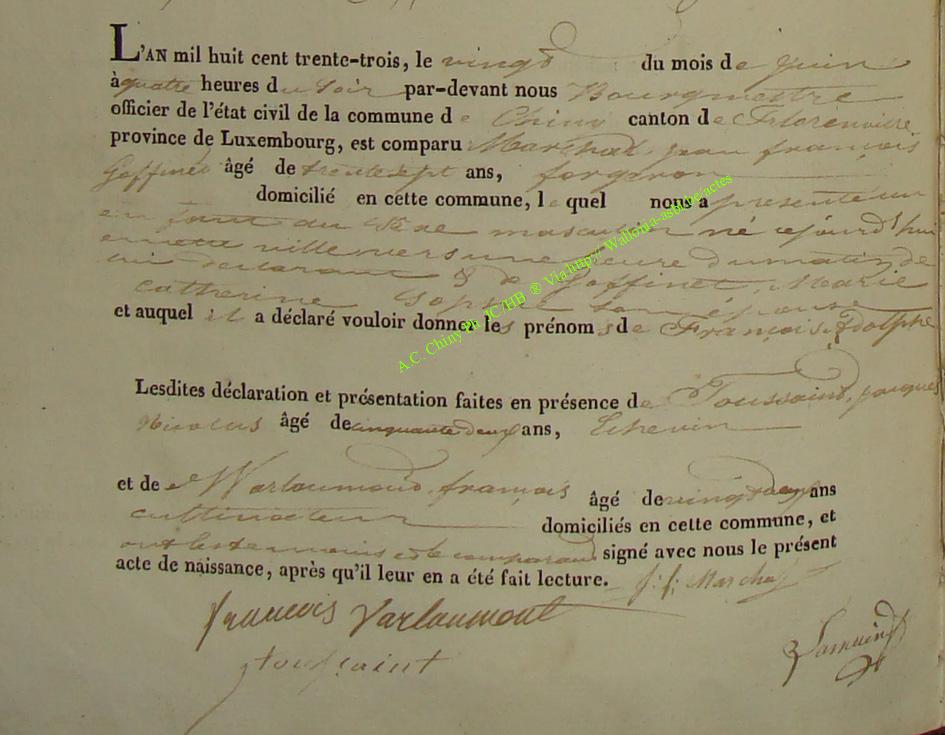 L'AN mil huit cent trente-trois, le vingt du mois de juin
à quatre heures du soir par-devant nous Bourgmestre
officier de l'état civil de la commune de Chiny canton de Florenville
province de Luxembourg, est comparu Marchal jean françois
Goffinet âgé de trente sept ans, forgeron
domicilié en cette commune, lequel nous a presenté un
enfant du sexe masculin né cejourd'hui
en cette ville vers une heure du matin, de
lui declarant & de Goffinet, Marie
Catherine son épouse
et auquel il a déclaré vouloir donner les prénoms de François Adolphe
Lesdites déclaration et présentation faites en présence de Toussaint, jacques
Nicolas âgé de cinquante deux ans, Echevin
et de Warlaumont, françois âgé de vingt deux ans
cultivateur domiciliés en cette commune, et
ont les temoins et le comparant signé avec nous le présent
acte de naissance, après qu'il leur en a été fait lecture. j: f: Marchal
françois Varlaumont
toussaint
A.C. Chiny Ph JC/HB ® Via http:// Wallonia-asbl.be/actes